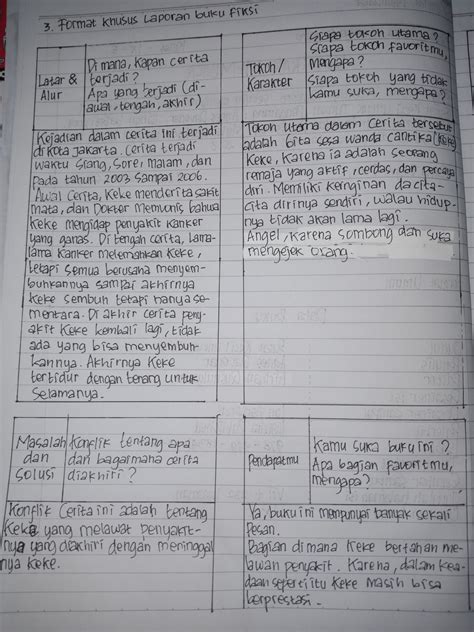 3. Format khusus Laporan buku Fiksi
Latar &
Alur
Di mana, kapan cerita
terjadi?
Apa yang terjadi (di-
awal, tengah, akhir)
Tokoh/
Karakter
Siapa tokoh utama?
Siapa tokoh favoritmu,
Mengapa?
Siapa tokoh yang tidak
kamu suka, mengapa?
Kejadian dalam cerita ini terjadi
di kota jakarta. cerita terjadi
waktu Siang, Sore, malam, dan
Pada tahun 2003 Sampai 2006.
Awal Cerita, Keke menderita sakit
mata, dan Dokter memvonis bahwa
Keke mengidap penyakit kanker
yang ganas. Di tengah cerita, Lama-
lama Kanker melemahkan Keke,
tetapi semua berusaha menyem-
buhkannya sampai akhirnya
Keke sembuh tetapi hanya se-
mentara. Di akhir cerita peny-
akit Keke kembali lagi, tidak
ada yang bisa menyembuh-
kannya. Akhirnya Keke
tertidur dengan tenang untuk
Selamanya.
Tokoh utama dalam cerita tersebut
adalah Gita sesa wanda cantika (Keke)
Keke, Karena ia adalah seorang
remaja yang aktif, cerdas, dan percaya
diri. Memiliki keinginan da cita-
cita dirinya sendiri, walau hidup-
nya tidak akan lama lagi.
Angel, Karena sombong dan suka
mengejek orang.
Masalah
dan
solusi
Konflik tentang apa
dan bagaimana cerita
diakhiri?
Pendapatmu
Kamu suka buku ini?
Apa bagian favoritmu,
mengapa?
Konflik Cerita ini adalah tentang
Keke yang melawat penyakit-
nya yang diakhiri dengan meninggal
nya Keke.
Ya, buku ini mempunyai banyak sekali
Pesan.
Bagian di mana Keke bertahan me-
lawan penyakit. Karena, dalam kea-
daan seperti itu Keke Masih bisa
berprestasi.